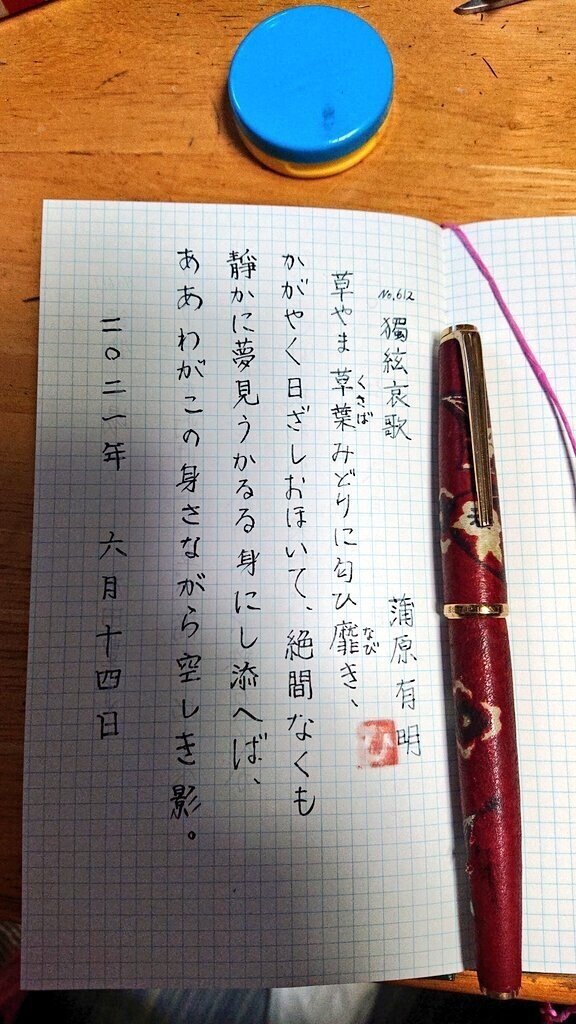 No.612
獨絃哀歌 蒲原有明
草やま草葉みどりに匂ひ靡き、
くさば
なび
かがやく日ざしおほいて、絶間なくも
静かに夢見うかるる身にし添へば、
ああわがこの身さながら空しき影。
二〇二一年 六月十四日
ひ